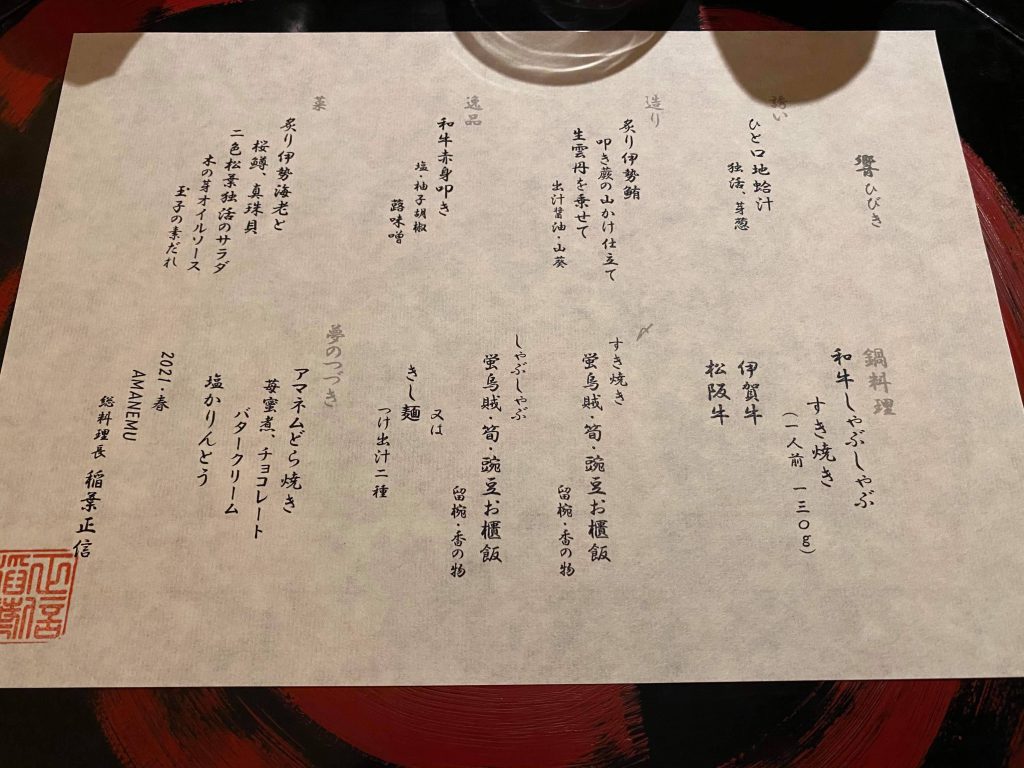 響 ひびき
誘い
ひと口地蛤汁
独活、芽葱
造り
炙り伊勢鮪
叩き蕨の山かけ仕立て
生雲丹を乗せて
出汁醤油・山葵
逸品
和牛赤身叩き
塩・柚子胡椒
蕗味噌
菜
炙り伊勢海老と
桜鱒、真珠貝
二色松葉独活のサラダ
木の芽オイルソース
玉子の素だれ
鍋料理
和牛しゃぶしゃぶ
すき焼き
(一人前 一三〇g)
伊賀牛
松阪牛
〆
すき焼き
蛍烏賊・筍・豌豆お櫃飯
留椀・香の物
しゃぶしゃぶ
蛍烏賊・筍・豌豆お櫃飯
留椀・香の物
又は
きし麺
つけ出汁二種
夢のつづき
アマネムどら焼き
苺蜜煮、チョコレート
バタークリーム
塩かりんとう
2021・春
AMANEMU
総料理長 稲葉正信